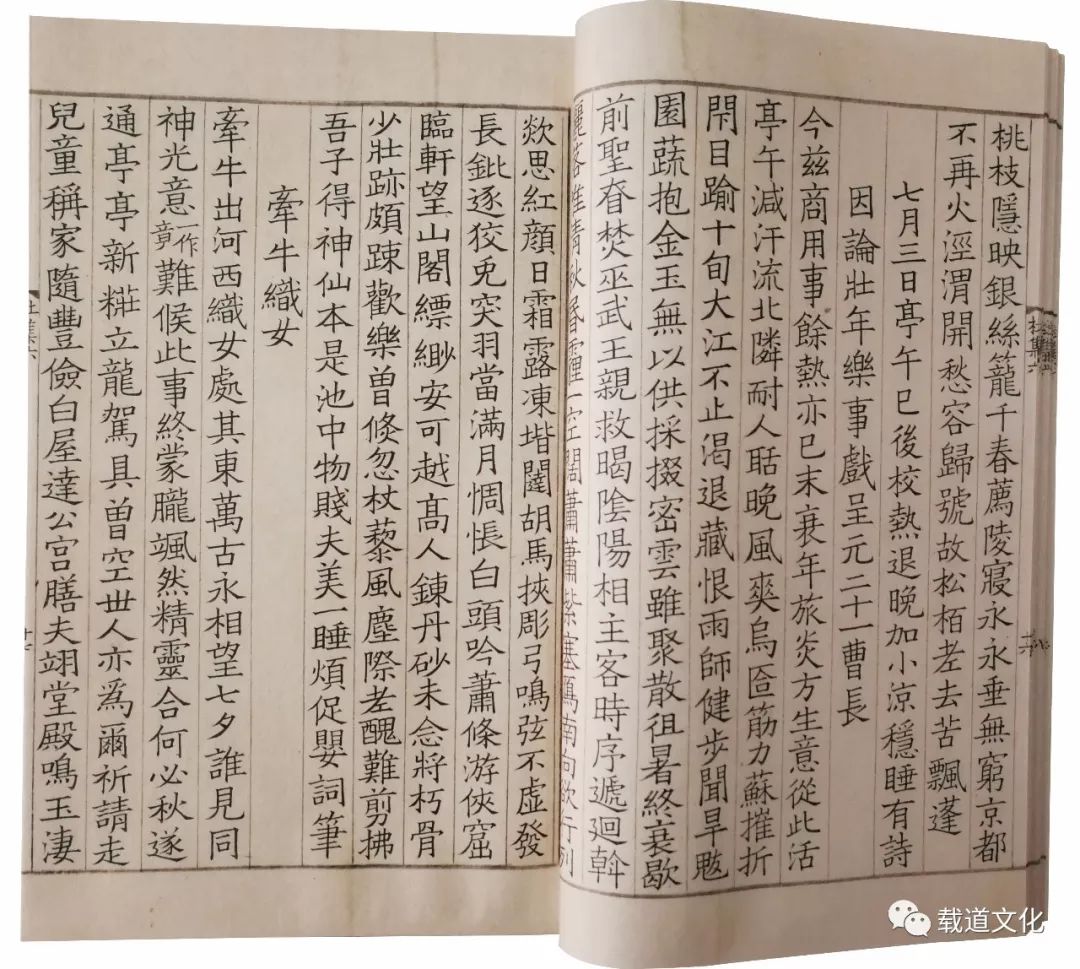 桃枝隱映銀絲籠千春薦陵寢永永垂無窮京都
不再火涇渭開愁容歸號故松栢老去苦飄蓬
七月三日亭午已後校熱退晚加小涼穩睡有詩
因論壯年樂事戲呈元二十一曹長
今茲商用事餘熱亦已末衰年旅炎方生意從此活
亭午減汗流北隣耐人聒晚風爽烏匼筋力蘇摧折
閇目踰十旬大江不止渴退藏恨雨師健步聞旱魃
園蔬抱金玉無以供採掇密雲雖聚散徂暑終衰歇
前聖昚焚巫武王親救暍陰陽相主客時序遞迴斡
灑落唯清秋昏霾一空闊蕭蕭紫塞鴈南向欲行列
欻思紅顏日霜露凍堦闥胡馬挾彫弓鳴弦不虛發
長鈚逐狡兎突羽當滿月惆悵白頭吟蕭條游俠窟
臨軒望山閣縹緲安可越髙人鍊丹砂未念將朽骨
少壯跡頗踈歡樂曾倏忽杖藜風塵際老醜難剪拂
吾子得神仙本是池中物賤夫美一睡煩促嬰詞筆
牽牛織女
牽牛出河西織女處其東萬古永相望七夕誰見同
神光意一作竟難候此事終蒙朧颯然精靈合何必秋遂
通亭亭新糚立龍駕具曾空世人亦爲爾祈請走
兒童稱家隨豐儉白屋達公宮膳夫翊堂殿鳴玉淒
杜集六
杜集六
载道文化